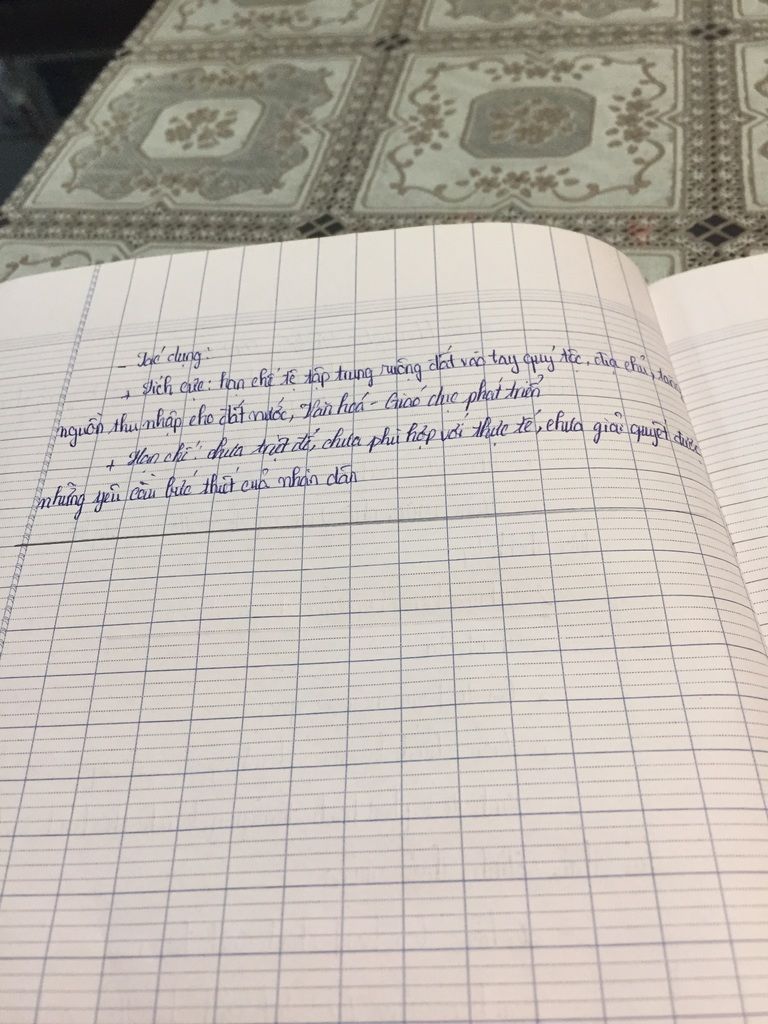 - Tác dụng:
+ Tích cực: hạn chế tệ tập trung ruộng đất vào tay quý tộc, địa chủ, tăng
nguồn thu nhập cho đất nước, Văn hoá - Giáo dục phát triển
+ Hạn chế: chưa triệt để, chưa phù hợp với thực tế, chưa giải quyết được
những yêu cầu bức thiết của nhân dân